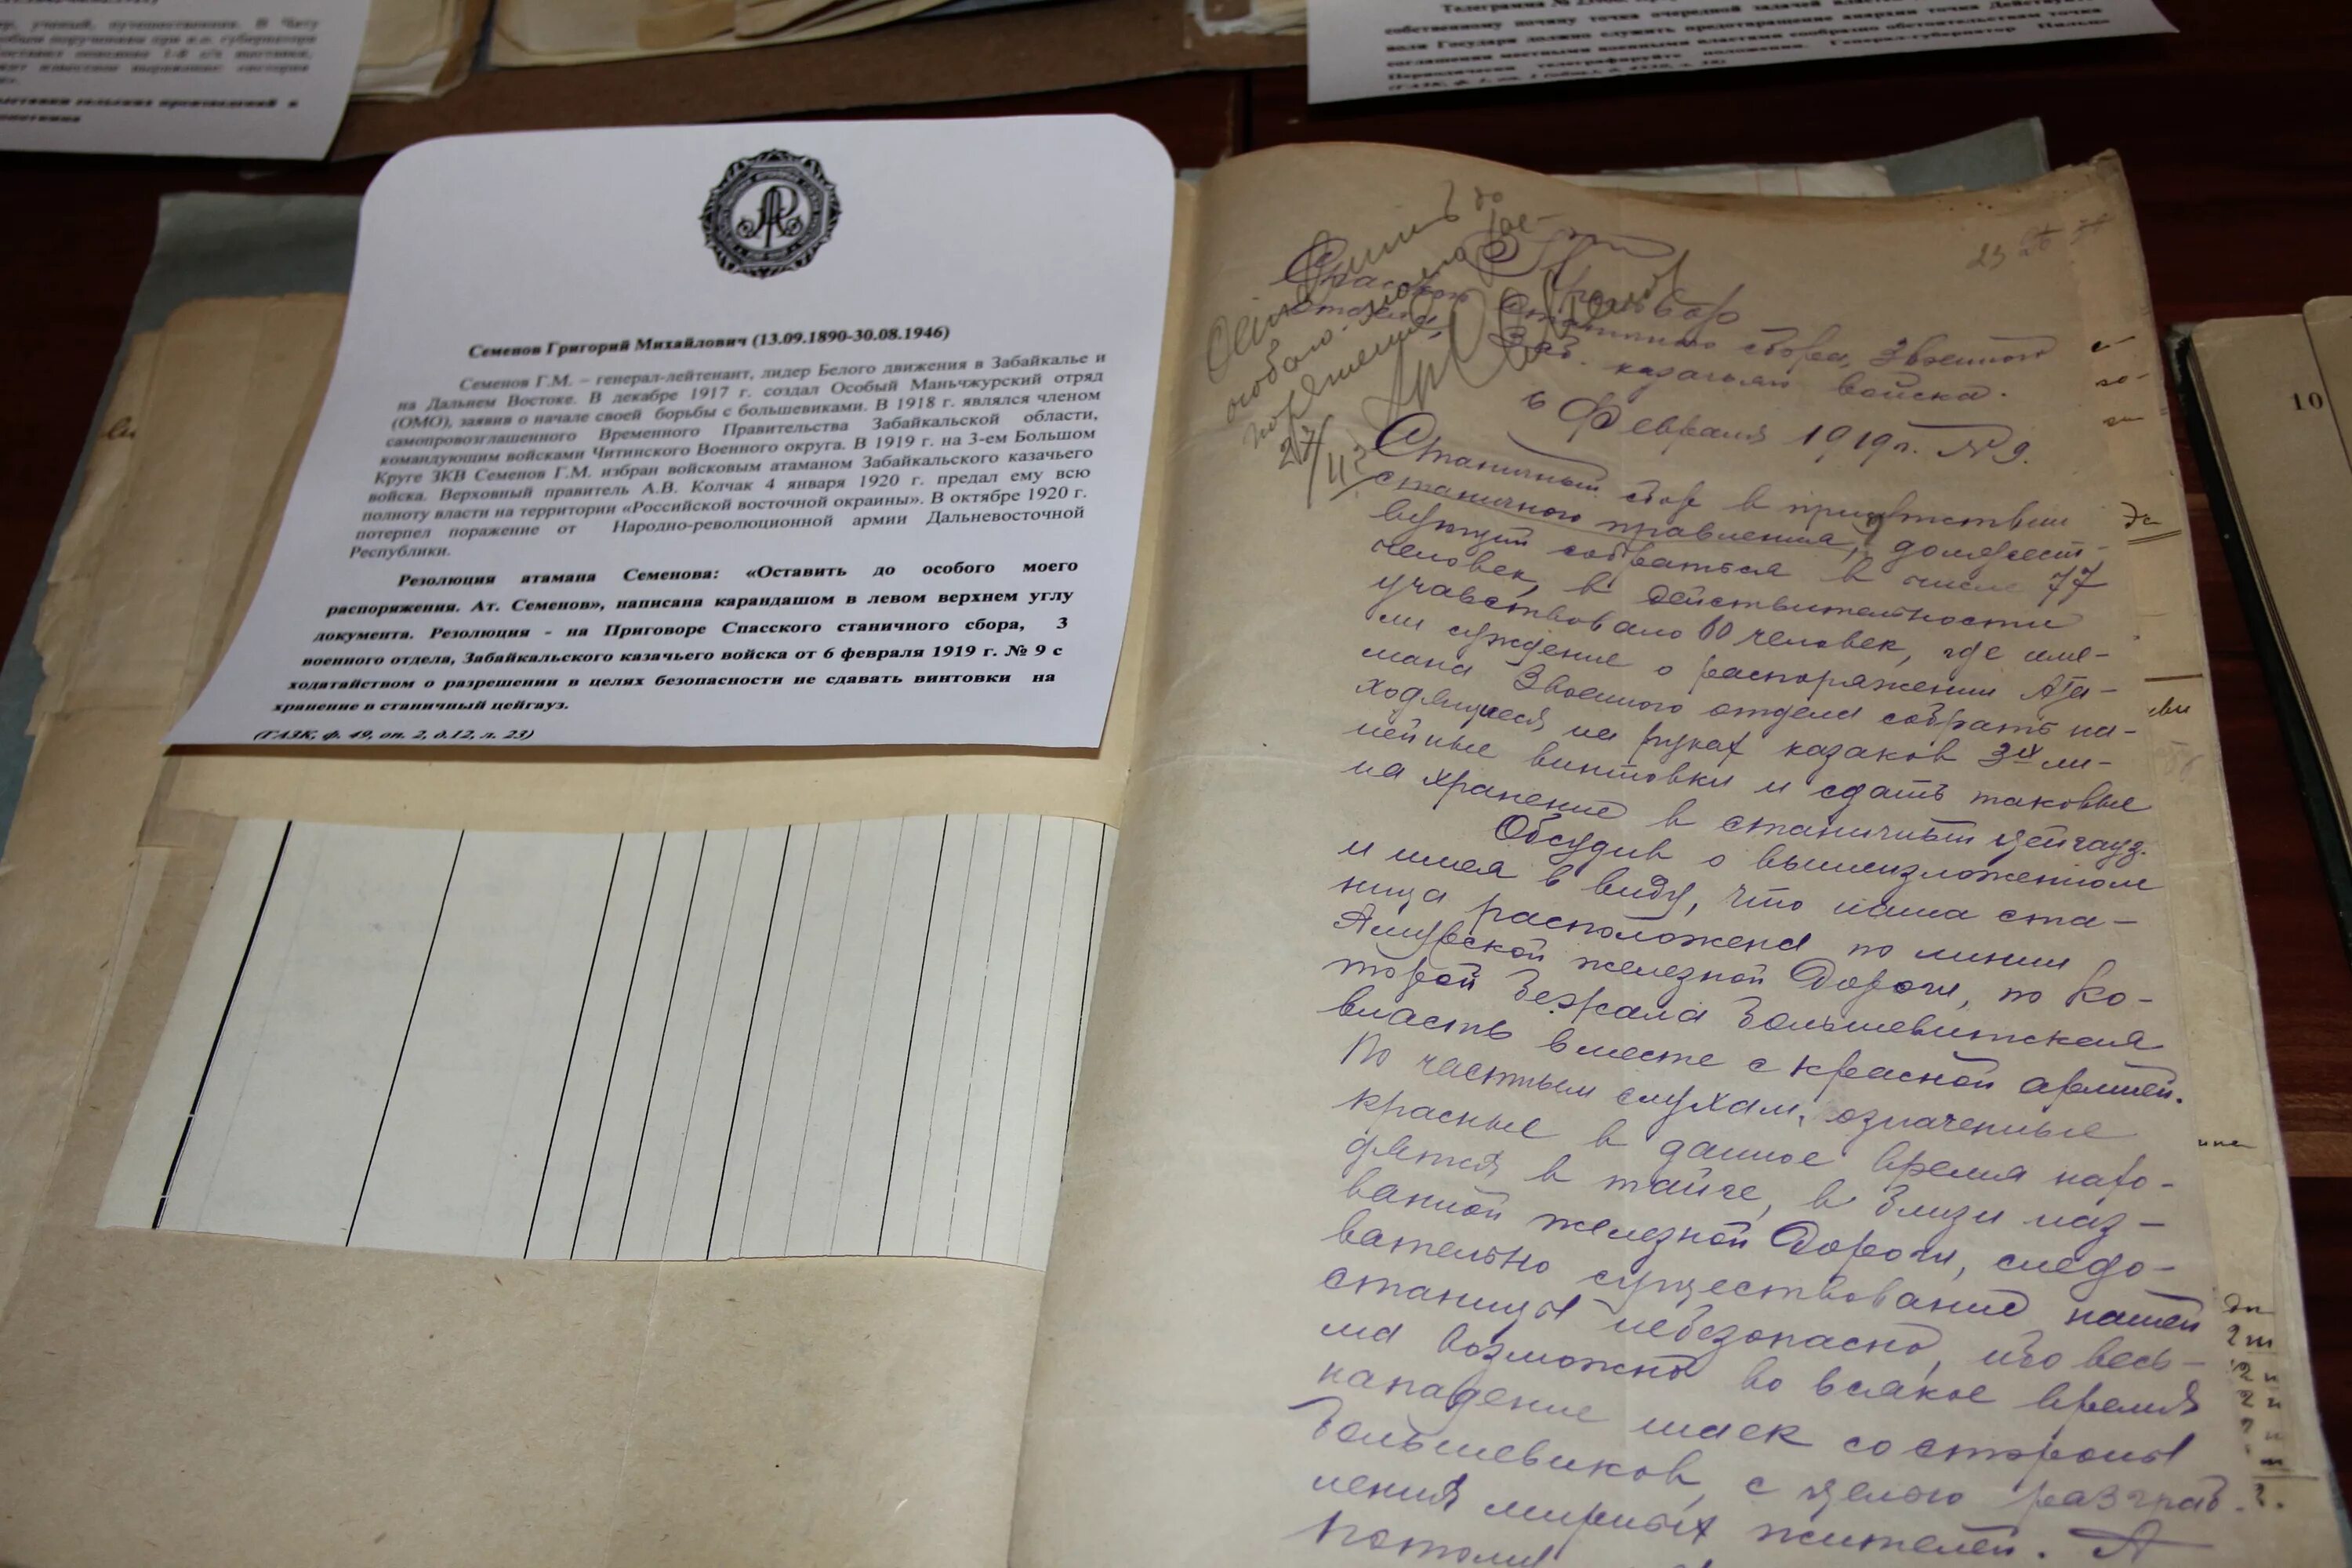 ер, ученый, путешественник. В Читу
обым поручениям при и.о. губернатора
Телеграмма №
собственному почину точка очередной задачей власти
воли Государя должно служить предотвращение анархии точка Действуйте
соглашении местными военными властями сообразно обстоятельствам точка
Периодически телеграфируйте положении. Генерал-губернатор
Семенов Григорий Михайлович (13.09.1890-30.08.1946)
Семенов Г.М. – генерал-лейтенант, лидер Белого движения в Забайкалье и
на Дальнем Востоке. В декабре 1917 г. создал Особый Маньчжурский отряд
(ОМО), заявив о начале своей борьбы с большевиками. В 1918 г. являлся членом
самопровозглашенного Временного Правительства Забайкальской области,
командующим войсками Читинского Военного округа. В 1919 г. на 3-ем Большом
Круге ЗКВ Семенов Г.М. избран войсковым атаманом Забайкальского казачьего
войска. Верховный правитель А.В. Колчак 4 января 1920 г. предал ему всю
полноту власти на территории «Российской восточной окраины». В октябре 1920 г.
потерпел поражение от Народно-революционной армии Дальневосточной
Республики.
Резолюция атамана Семенова: «Оставить до особого моего
распоряжения. Ат. Семенов», написана карандашом в левом верхнем углу
документа. Резолюция - на Приговоре Спасского станичного сбора, 3
военного отдела, Забайкальского казачьего войска от 6 февраля 1919 г. № 9 с
ходатайством о разрешении в целях безопасности не сдавать винтовки на
хранение в станичный цейгауз.
(ГАЗК, ф. 49, оп. 2, д.12, л. 23)
23
Приговор
Спасского станичного сбора, 3 военного
отдела, Заб. казачьяго войска.
6 Февраля 1919 г. № 9.
Станичный сбор в присутствии
станичного правления, долженст-
вующий собраться в числе 77
человек, в действительности
учавствовало 60 человек, где име-
ли суждение о распоряжении Ата-
мана 3 военного отдела собрать на-
ходящиеся на руках казаков 3х ли-
нейные винтовки и сдать таковые
на хранение в станичный цейгауз.
Обсудив о вышеизложенном
и имея в виду, что наша ста-
ница расположена по линии
Амурской железной Дороги, по ко-
торой бежала большевитская
власть вместе с красной армией.
По частным слухам, означенные
красные в данное время нахо-
дятся в тайге, в близи наз-
ванной железной Дороги, следо-
вательно существование нашей
станицы небезопасно, ибо весь-
ма возможно во всякое время
нападение шаек со стороны
большевиков, с целью разграб-
ления мирных жителей. А
потому
10